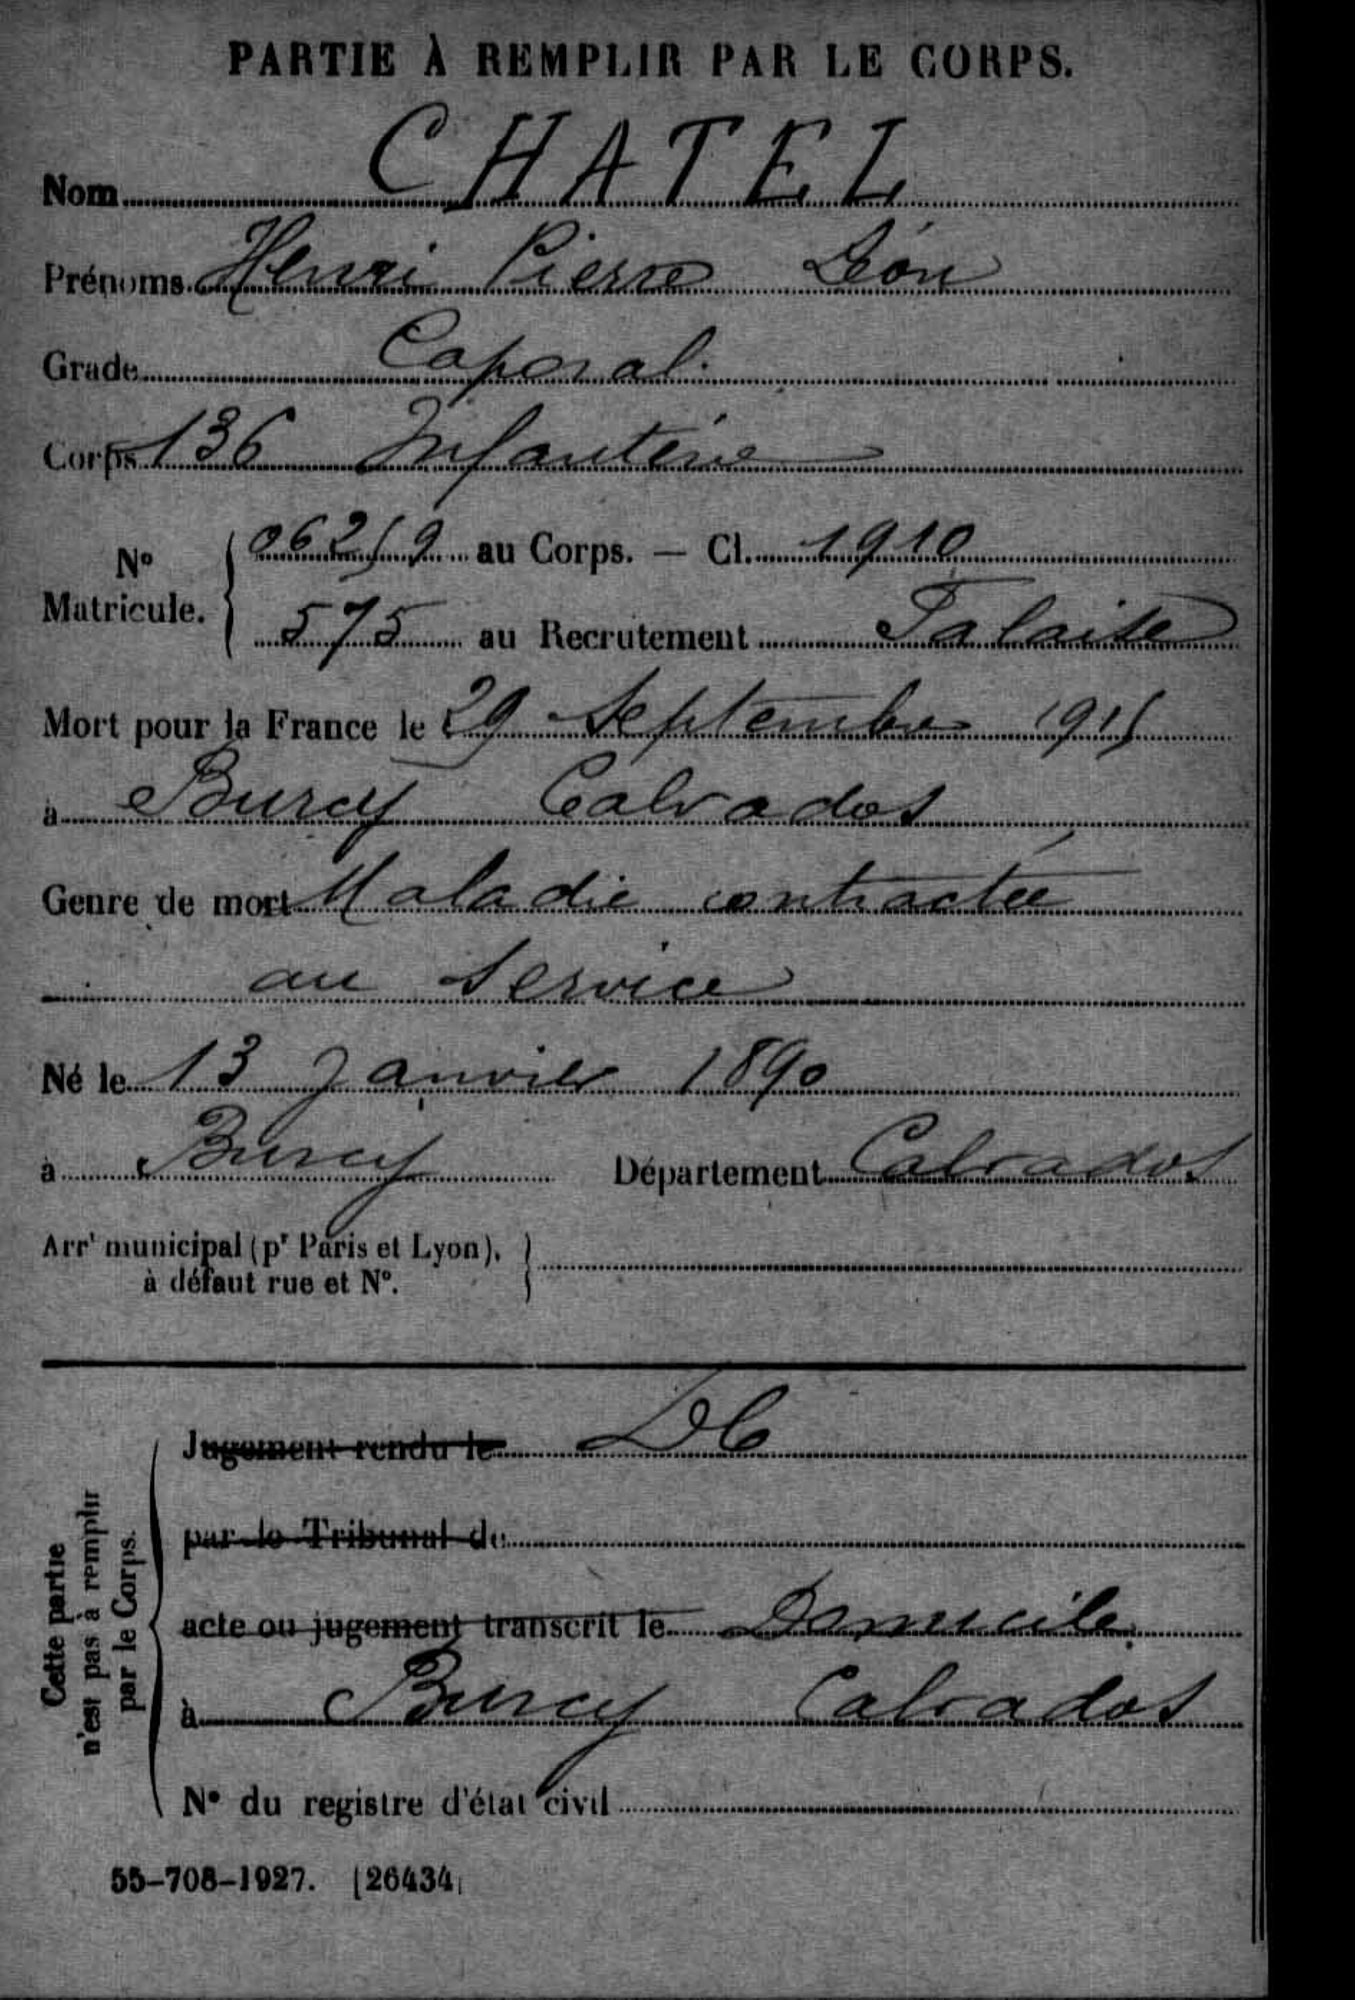 PARTIE À REMPLIR PAR LE CORPS.
Nom CHATEL
Prénoms Henri Pierre Léon
Grade Caporal.
Corps 136 Infanterie
N° Matricule. { 06259 au Corps. — Cl. 1910
575 au Recrutement Falaise
Mort pour la France le 29 Septembre 1915
à Burcy Calvados
Genre de mort Maladie contractée
au service
Né le 13 Janvier 1890
à Burcy Département Calvados
Arrt municipal (pr Paris et Lyon),
à défaut rue et N°.
Cette partie
n'est pas à remplir
par le Corps.
Jugement rendu le DC
par le Tribunal de
acte ou jugement transcrit le Domicile
à Burcy Calvados
N° du registre d'état civil
55-708-1927. [26434]